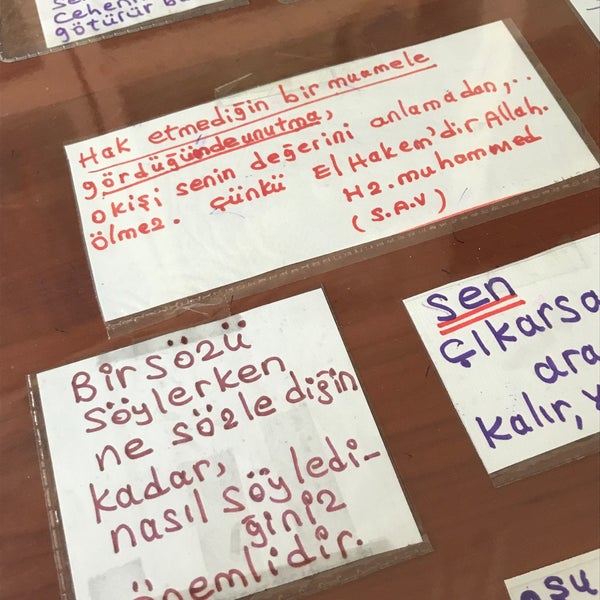 Cehenn
götürür
Hak etmediğin bir muamele
gördüğündeunutma,
o kişi senin değerini anlamadan,..
ölmez. çünkü El Hakem'dir Allah.
Hz. muhammed
(S.A.V)
Bir sözü
söylerken
ne sözle diğin
kadar,
nasıl söyledi-
ğiniz
önemlidir.
sen
çıkarsa
ara
kalır,